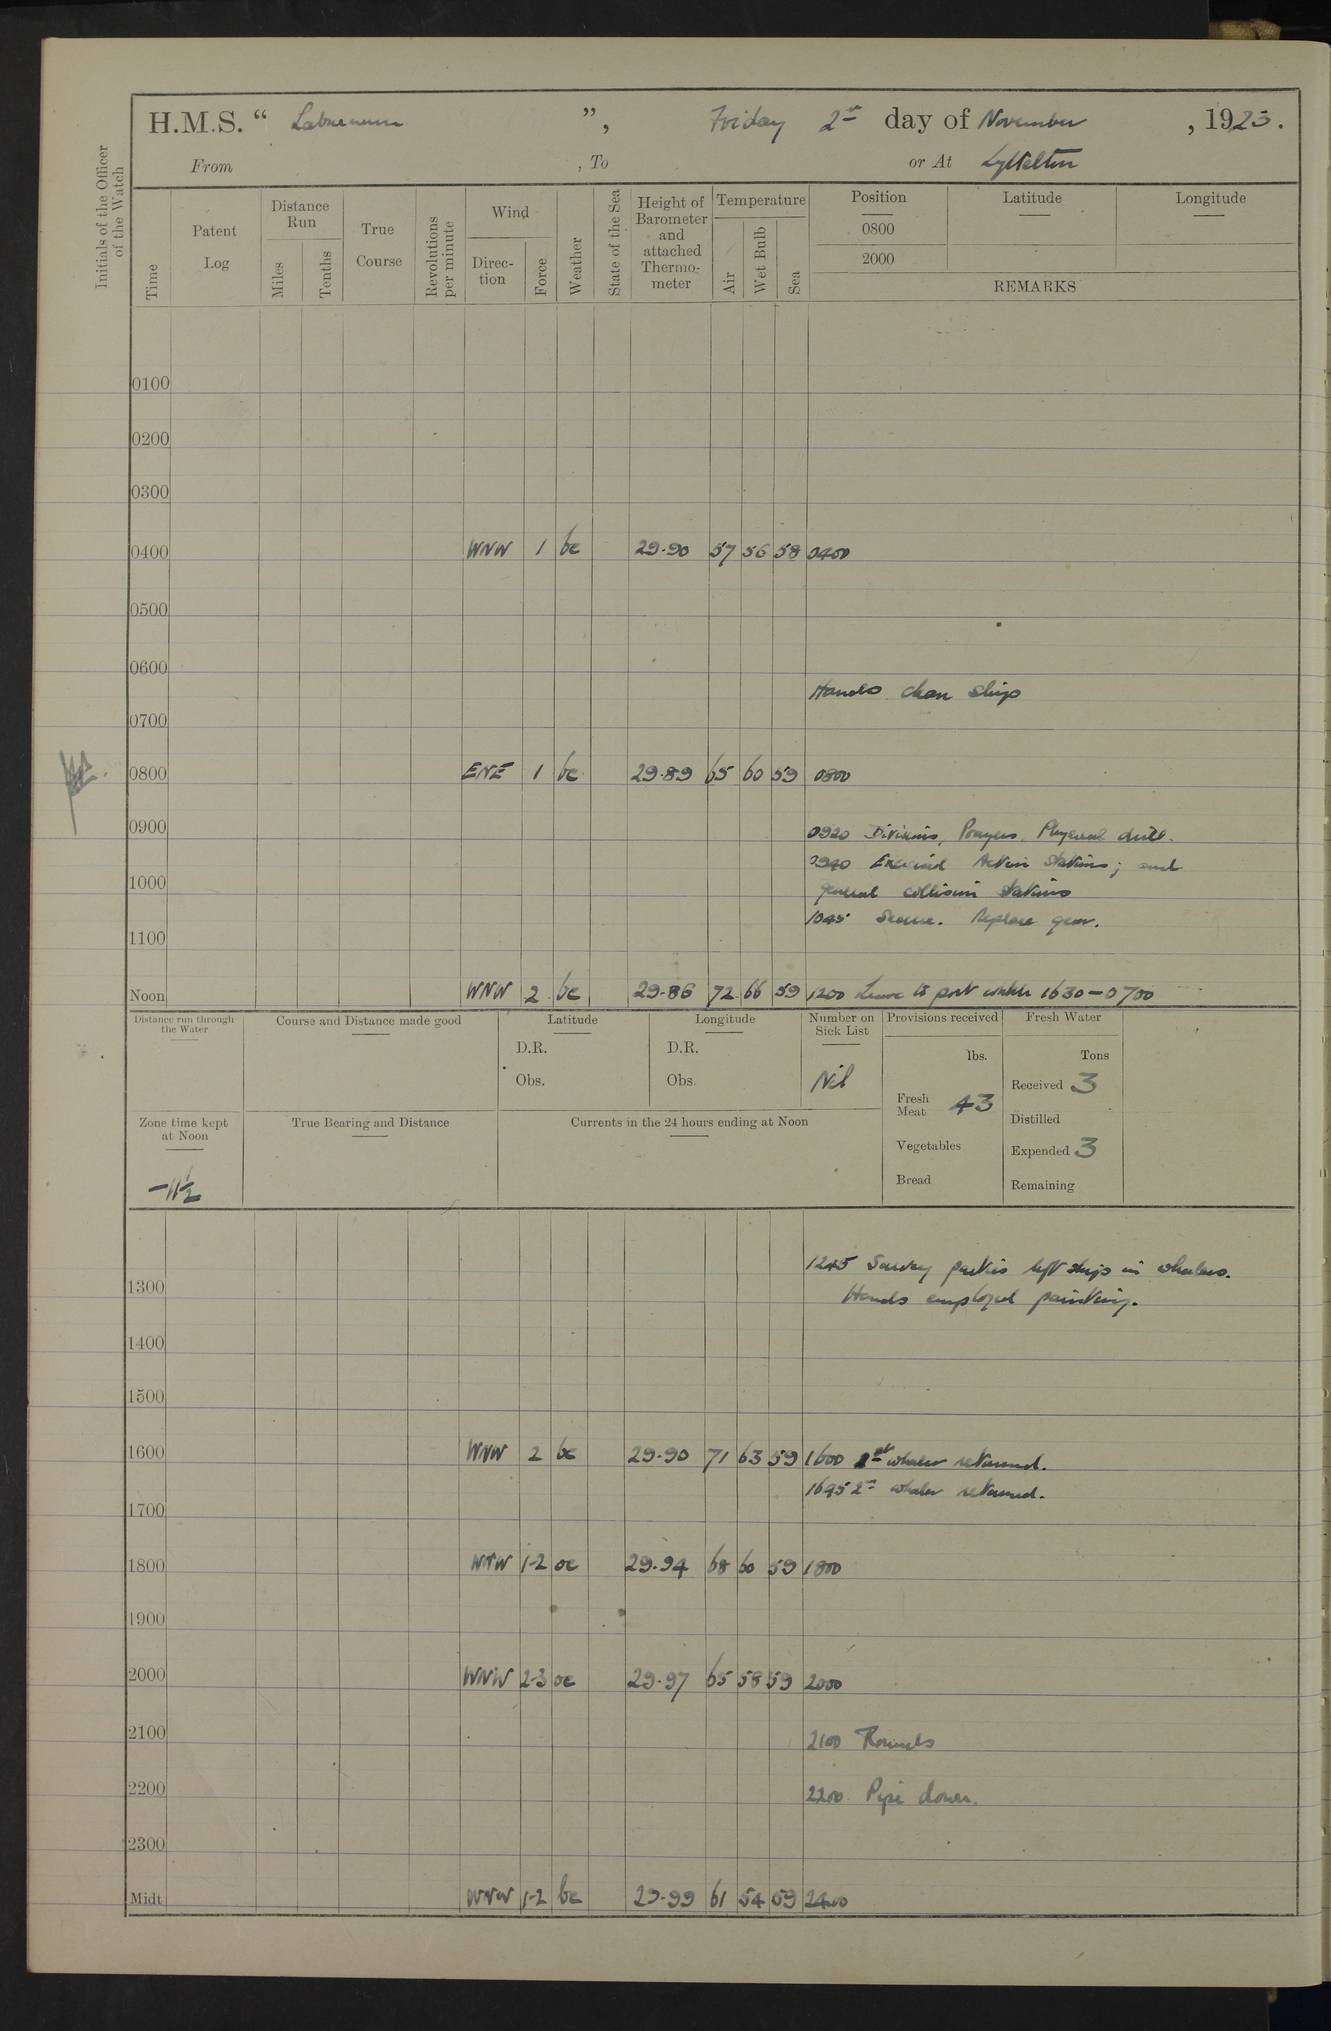 H.M.S. “ Laburnum ”, Friday 2nd day of November , 1923.
From , To or At Lyttelton
Initials of the Officer of the Watch
Time
Patent Log
Distance Run
Miles
Tenths
True Course
Revolutions per minute
Wind
Direc- tion
Force
Weather
State of the Sea
Height of Barometer and attached Thermo- meter
Temperature
Air
Wet Bulb
Sea
Position Latitude Longitude
0800
2000
REMARKS
0100
0200
0300
0400 WNW 1 bc 29.90 57 56 58 0400
0500
0600
Hands clean ship
0700
0800 ENE 1 bc 29.89 65 60 59 0800
0900
0920 Divisions, Prayers. Physical drill.
0940 Exercised Action Stations; and
1000
general collision stations
1045 Secure. Replace gear.
1100
Noon WNW 2 bc 29.86 72 66 59 1200 Leave to port watch 1630–0700
Distance run through the Water
Course and Distance made good
Latitude
D.R.
Obs.
Longitude
D.R.
Obs.
Number on Sick List
Nil
Provisions received
lbs.
Fresh Meat 43
Vegetables
Bread
Fresh Water
Tons
Received 3
Distilled
Expended 3
Remaining
Zone time kept at Noon
–11½
True Bearing and Distance
Currents in the 24 hours ending at Noon
1245 Survey parties left ship in whalers.
1300
Hands employed painting.
1400
1500
1600 WNW 2 bc 29.90 71 63 59 1600 1st whaler returned.
1645 2nd whaler returned.
1700
1800 1-2 oc 29.94 68 60 59 1800
1900
2000 WNW 2-3 oc 29.97 65 58 59 2000
2100 2100 Rounds
2200 2200 Pipe down.
2300
Midt WNW 1-2 bc 29.99 61 54 59 2400